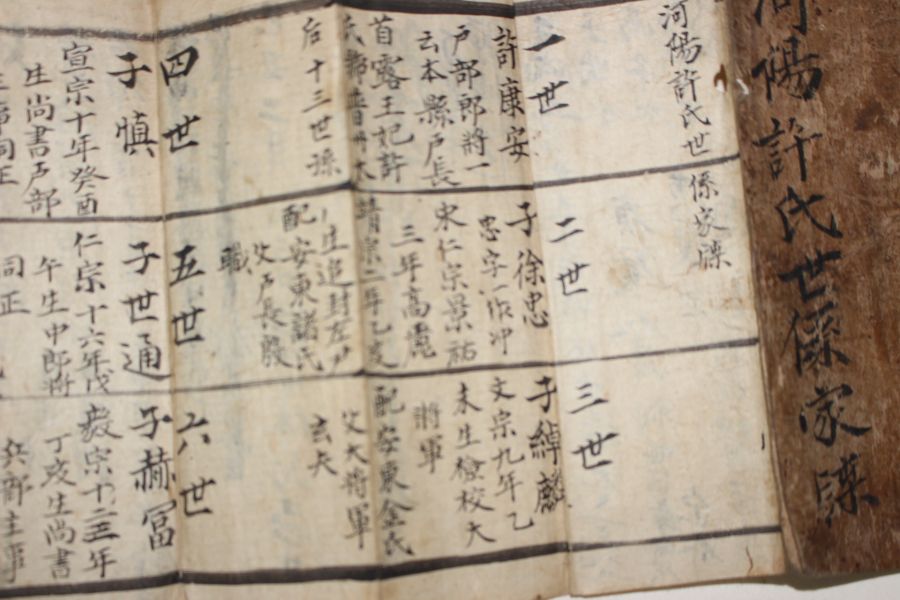 河陽許氏世係家牒
河陽許氏世
係家牒
一世
許康安
戶部郎將一
云本縣戶長
首露王妃許
后十三世孫
二世
子徐忠
忠字一作冲
宋仁宗景祐
三年高麗
靖宗二年乙亥
生追封左尹
配安東諸氏
父戶長殷
職
三世
子綽麟
文宗九年乙
未生檢校大
將軍
配安東金氏
父大將軍
玄夫
四世
子慎
宣宗十年癸酉
生尚書戶部
主事同正
五世
子世通
仁宗十六年戊
午生中郎將
同正
六世
子赫冨
毅宗十二年
丁亥生尚書
兵部主事